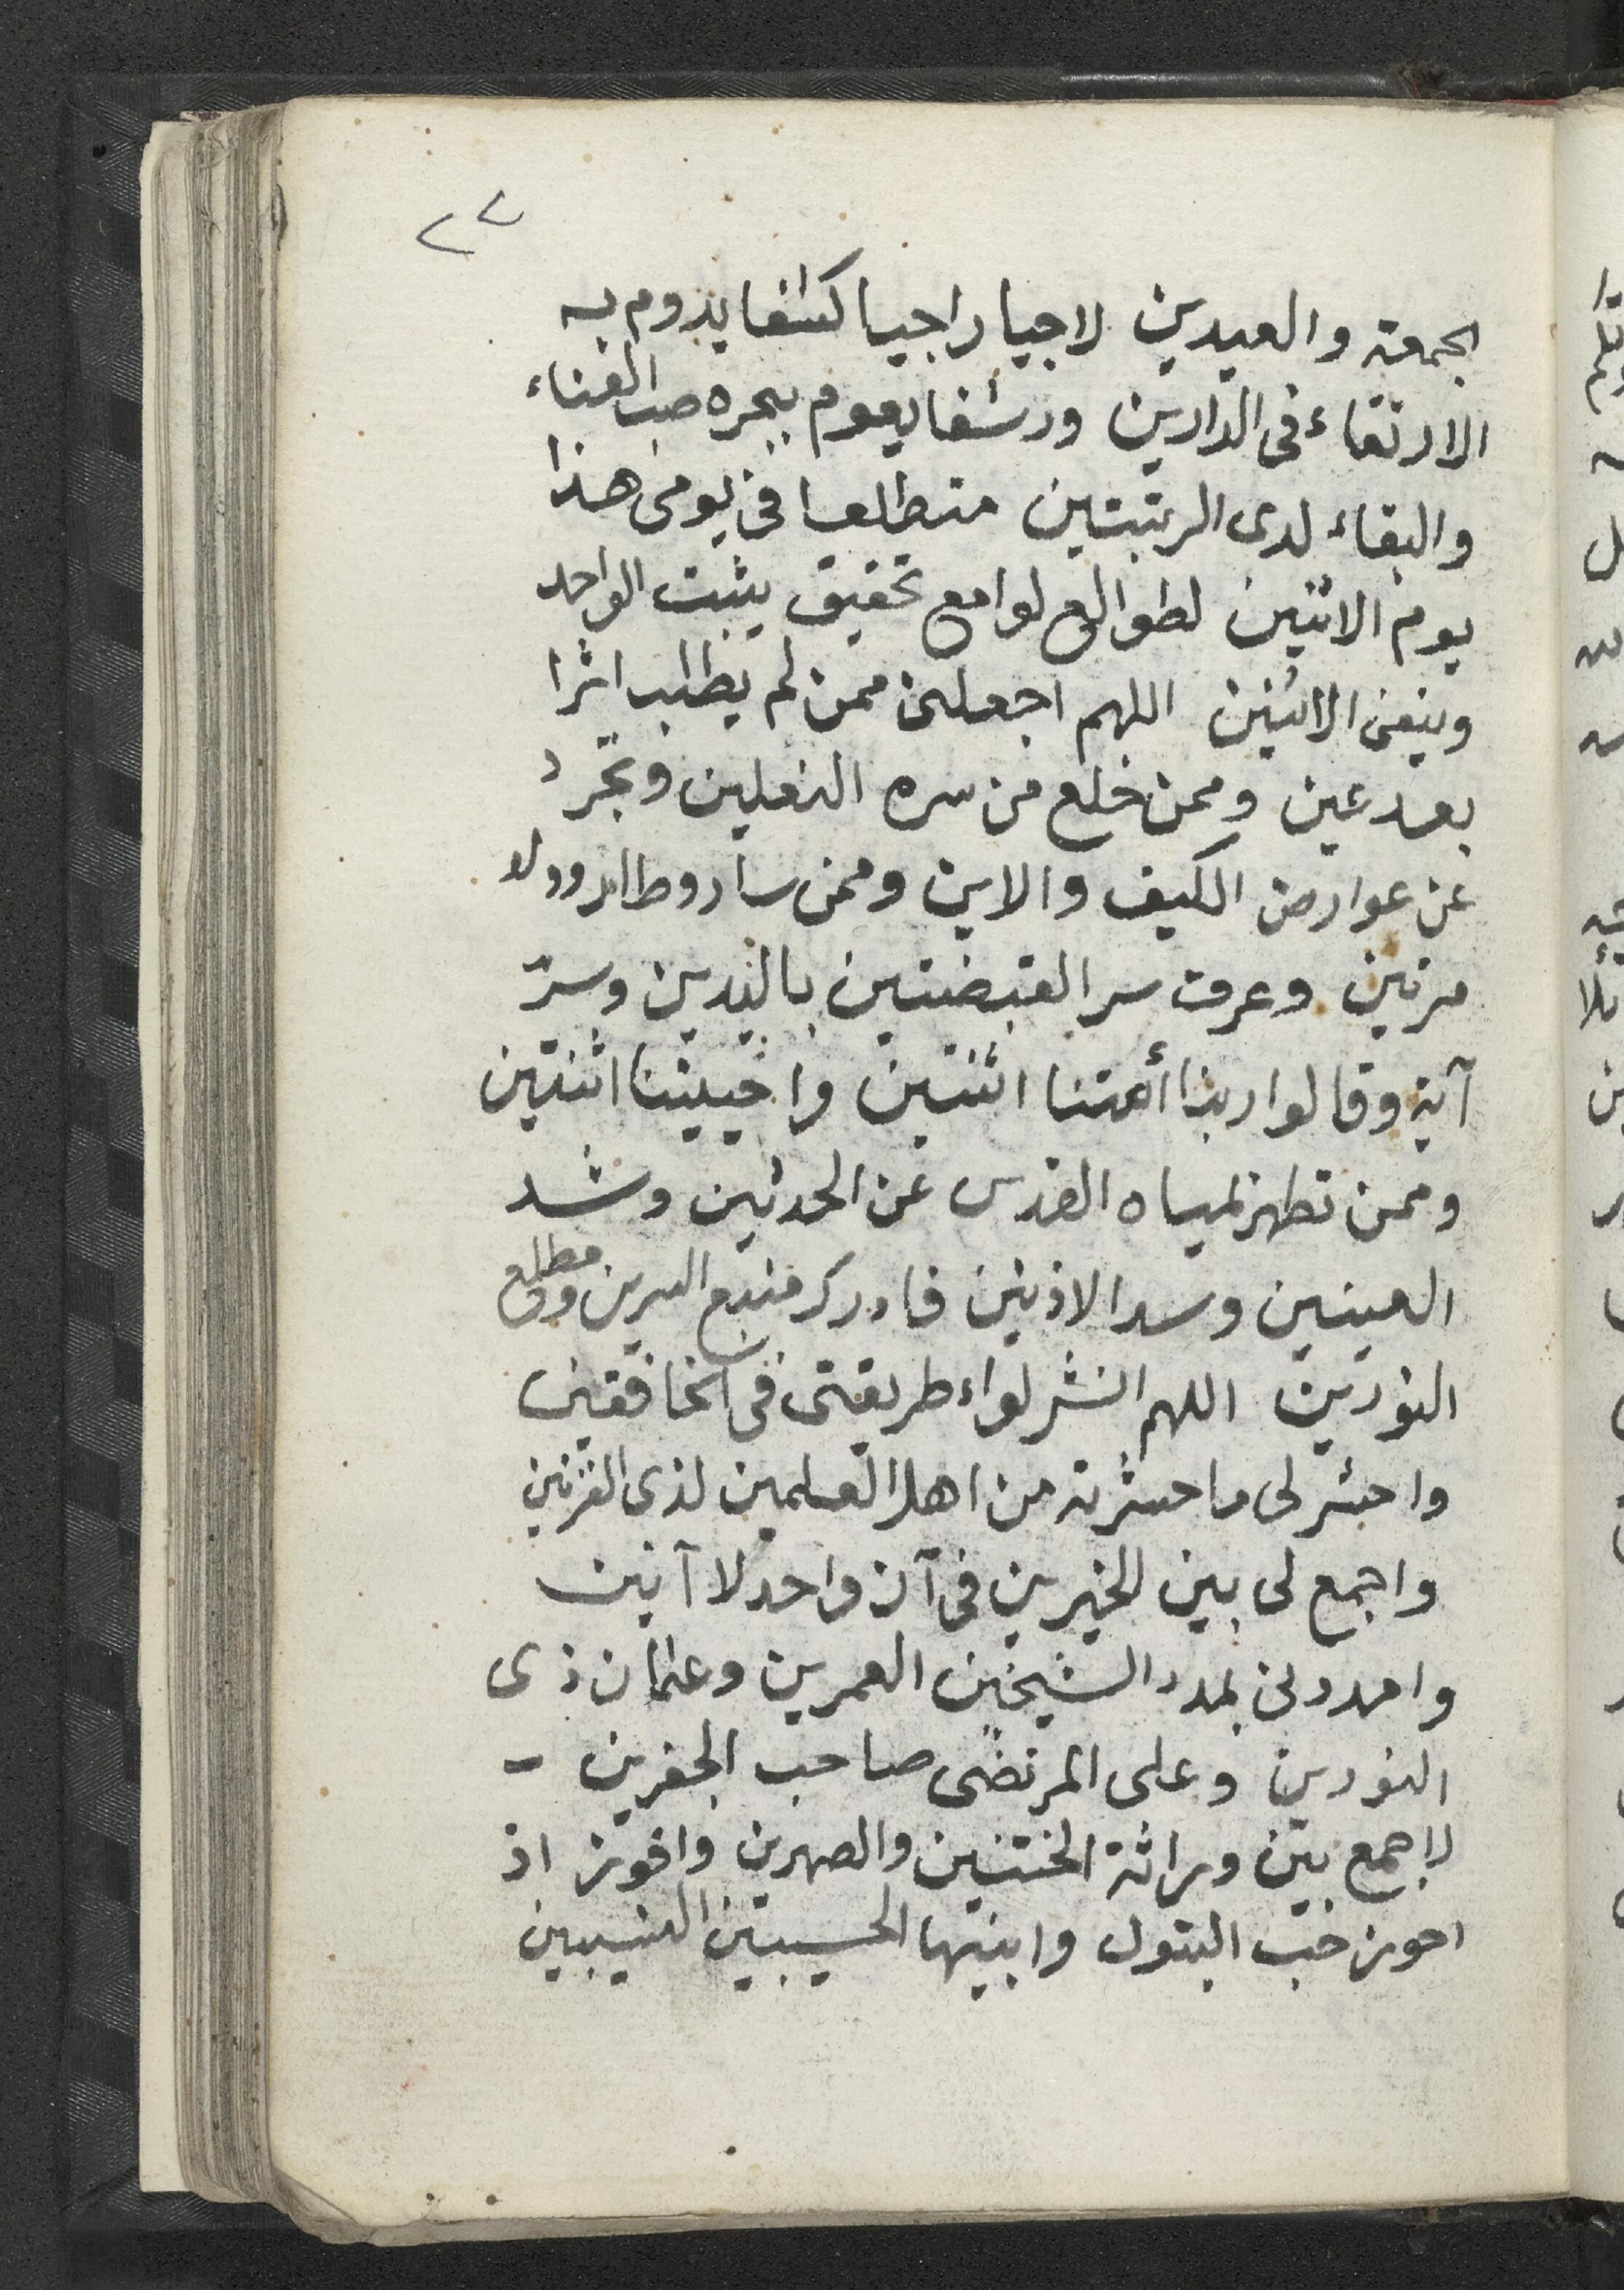 ٢٢
الجمعة والعيدين لاجيا راجيا كشفا يدوم به
الارتقاء فى الدارين ورشفا يعوم ببحره صب الفناء
والبقاء لدى الرتبتين متطلعا فى يومى هذا
يوم الاثنين لطوالع لوامع تحقيق يثبت الواحد
وينفى الاثنين اللهم اجعلنى ممن لم يطلب اثرا
بعد عين وممن خلع من سره النعلين وتجرد
عن عوارض الكيف والاين وممن سار وطار وولد
مرتين وعرف سر القبضتين باليدين وسرّ
آية وقالوا ربنا أمتنا اثنتين واحييتنا اثنتين
وممن تطهر بمياه القدس عن الحدثين وشد
العينين وسد الاذنين فادرك منبع السرين ومطلع
النورين اللهم انشر لواء طريقتى فى الخافقين
واحشر لى ما حشرته من اهل العلمين لذى القرنين
واجمع لى بين الخيرين فى آن واحد لا آنين
وامددنى بمدد الشيخين العمرين وعثمان ذى
النورين وعلى المرتضى صاحب الجفرين -
لاجمع بين وراثة الختنين والصهرين وافوز اذ
احوز حب البتول وابنيها الحسيبين النسيبين